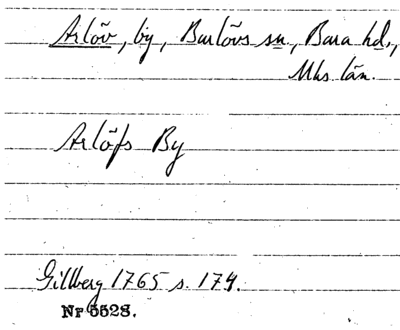 Arlöv, by, Burlövs sn, Bara hd.,
Mhs län.
Arlöfs By
Gillberg 1765 s. 174.
Nr 5528.